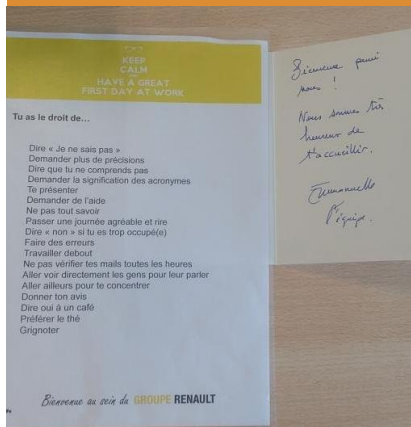 KEEP
CALM
HAVE A GREAT
FIRST DAY AT WORK
Tu as le droit de...
Dire « Je ne sais pas »
Demander plus de précisions
Dire que tu ne comprends pas
Demander la signification des acronymes
Te présenter
Demander de l'aide
Ne pas tout savoir
Passer une journée agréable et rire
Dire « non » si tu es trop occupé(e)
Faire des erreurs
Travailler debout
Ne pas vérifier tes mails toutes les heures
Aller voir directement les gens pour leur parler
Aller ailleurs pour te concentrer
Donner ton avis
Dire oui à un café
Préférer le thé
Grignoter
Bienvenue au sein du GROUPE RENAULT
Bienvenue parmi
nous !
Nous sommes très
heureux de
t'accueillir.
Emmanuelle
l'équipe.